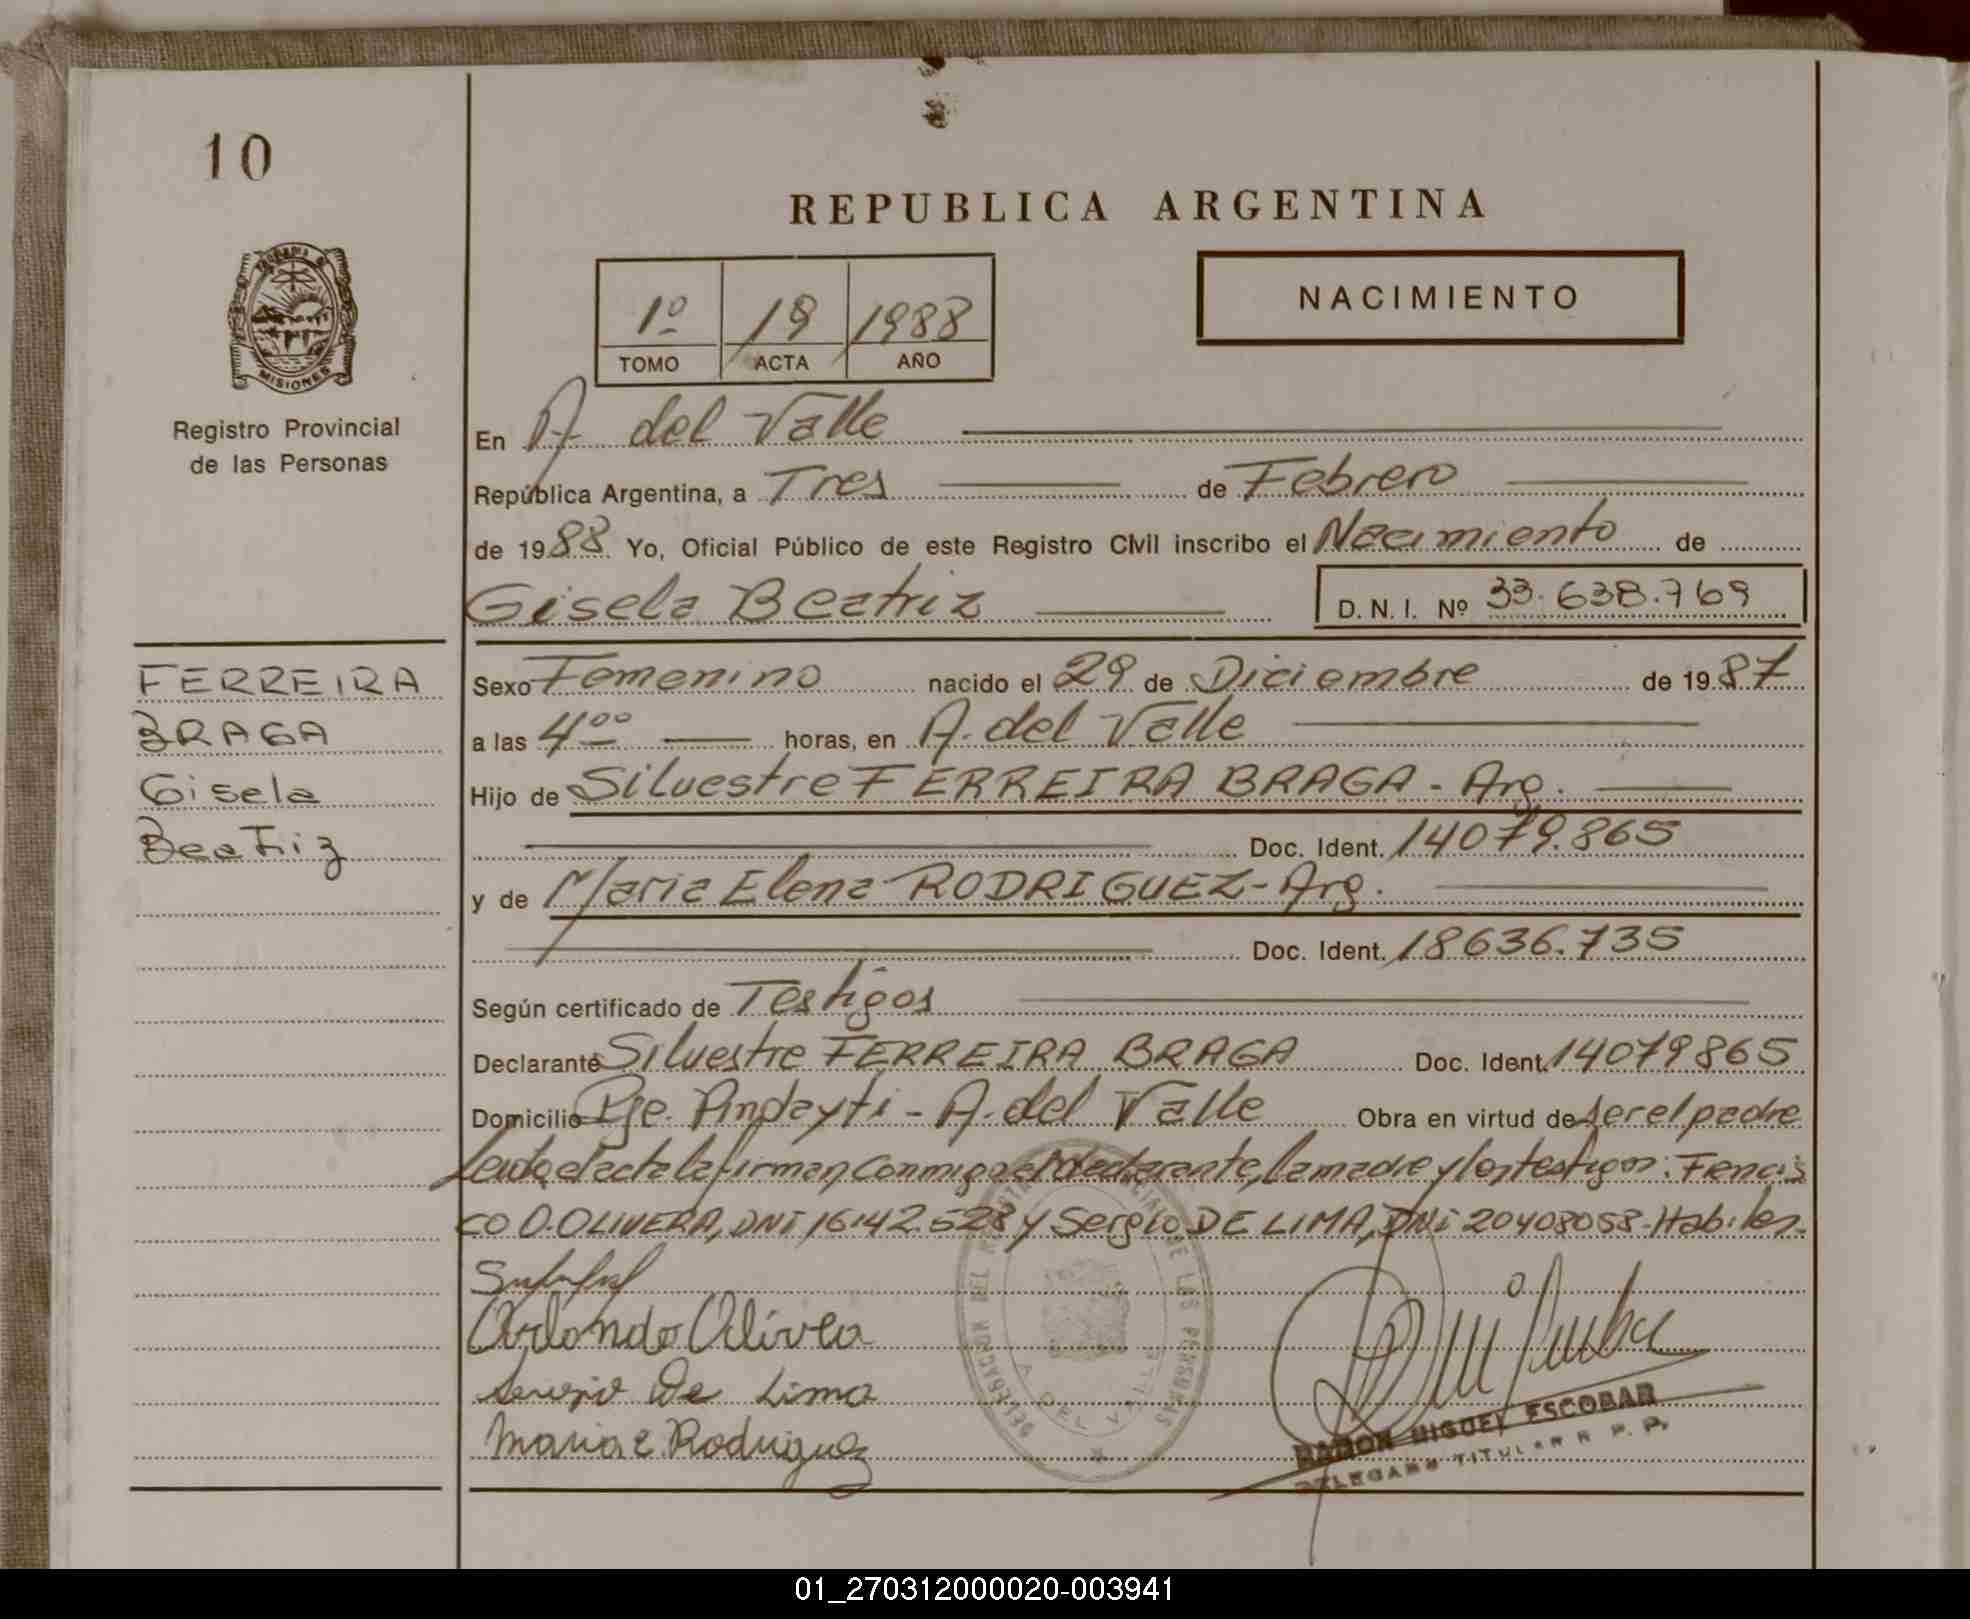 10
REPUBLICA ARGENTINA
MISIONES
Registro Provincial
de las Personas
1º 19 1988
TOMO ACTA AÑO
NACIMIENTO
En A. del Valle
República Argentina, a Tres de Febrero
de 1988 Yo, Oficial Público de este Registro Civil inscribo el Nacimiento de
Gisela Beatriz D.N.I. Nº 33.638.769
FERREIRA
BRAGA
Gisela
Beatriz
Sexo Femenino nacido el 29 de Diciembre de 1987
a las 4⁰⁰ horas, en A. del Valle
Hijo de Silvestre FERREIRA BRAGA - Arg.
Doc. Ident. 14079.865
y de Maria Elena RODRIGUEZ - Arg.
Doc. Ident. 18636.735
Según certificado de Testigos
Declarante Silvestre FERREIRA BRAGA Doc. Ident. 14079865
Domicilio Pje. Pindayti - A. del Valle Obra en virtud de ser el padre
Leida el acta la firman conmigo el declarante, la madre y los testigos: Francis
co O. OLIVERA, DNI 16142.528 y Sergio DE LIMA, DNI 20408058 - Habiles.
Orlondo Olivera
Sergio De Lima
Maria E. Rodriguez
DELEGACION DEL REGISTRO PROVINCIAL DE LAS PERSONAS
A. DEL VALLE
RAMON MIGUEL ESCOBAR
DELEGADO TITULAR R. P. P.
01_270312000020-003941